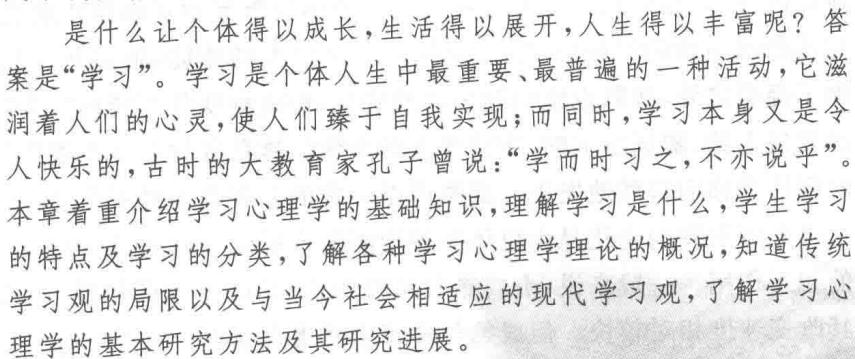 是什么让个体得以成长,生活得以展开,人生得以丰富呢?答
案是“学习”。学习是个体人生中最重要、最普遍的一种活动,它滋
润着人们的心灵,使人们臻于自我实现;而同时,学习本身又是令
人快乐的,古时的大教育家孔子曾说:“学而时习之,不亦说乎”。
本章着重介绍学习心理学的基础知识,理解学习是什么,学生学习
的特点及学习的分类,了解各种学习心理学理论的概况,知道传统
学习观的局限以及与当今社会相适应的现代学习观,了解学习心
理学的基本研究方法及其研究进展。